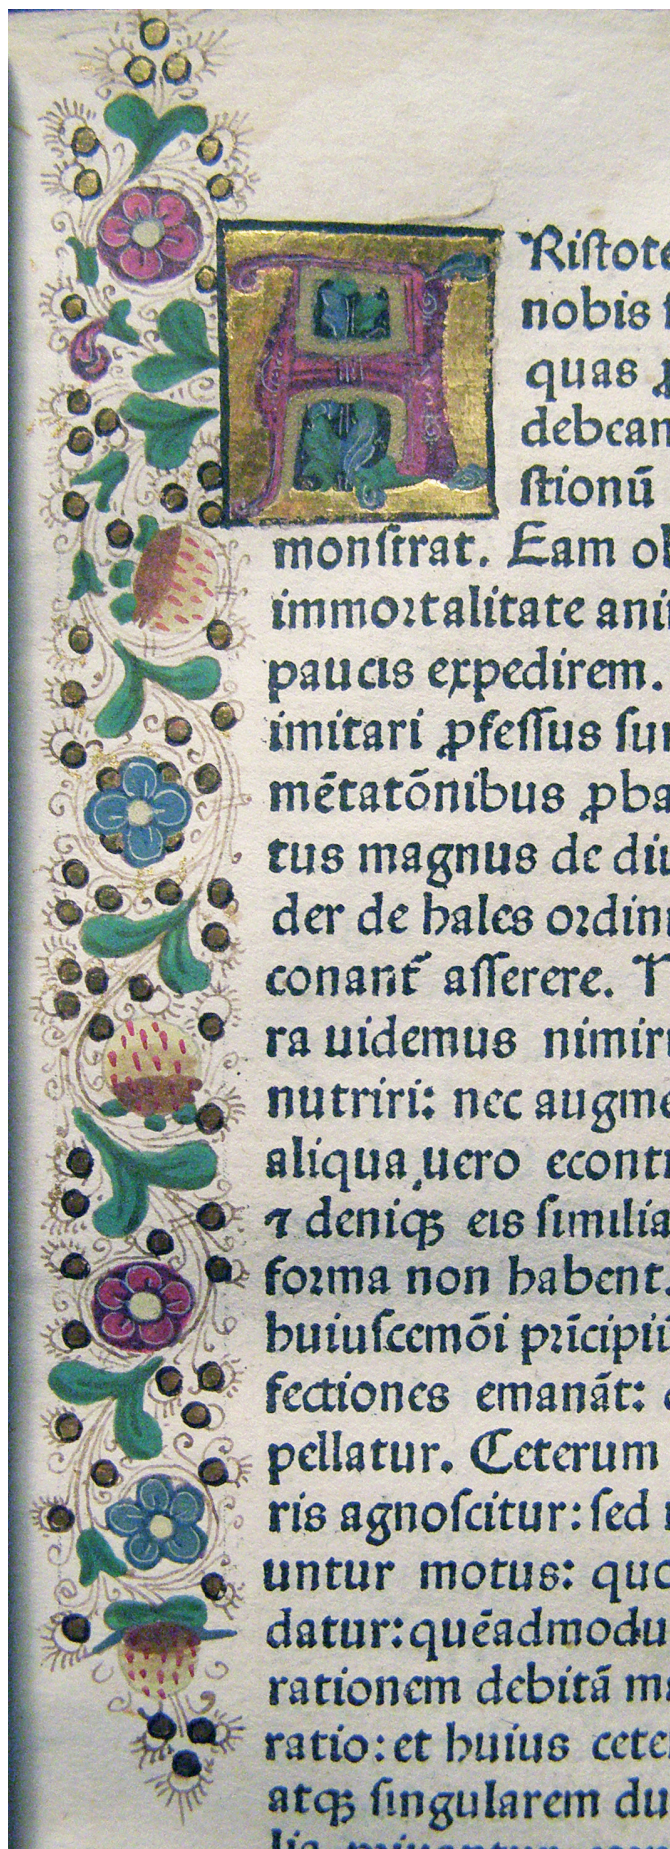 ARistote
nobis
quas
debean
stionū
monstrat. Eam ob
immortalitate ani
paucis expedirem.
imitari ꝓfessus su
mētatōnibus ꝓba
tus magnus de diu
der de hales ordin
conant᷑ asserere. T
ra uidemus nimir
nutriri: nec augme
aliqua uero econt
⁊ deniqꝫ eis similia
forma non habent
huiuscemōi prīcipiū
fectiones emanāt:
pellatur. Ceterum
ris agnoscitur: sed
untur motus: quo
datur: quēadmodu
rationem debitā m
ratio: et huius cete
atqꝫ singularem du